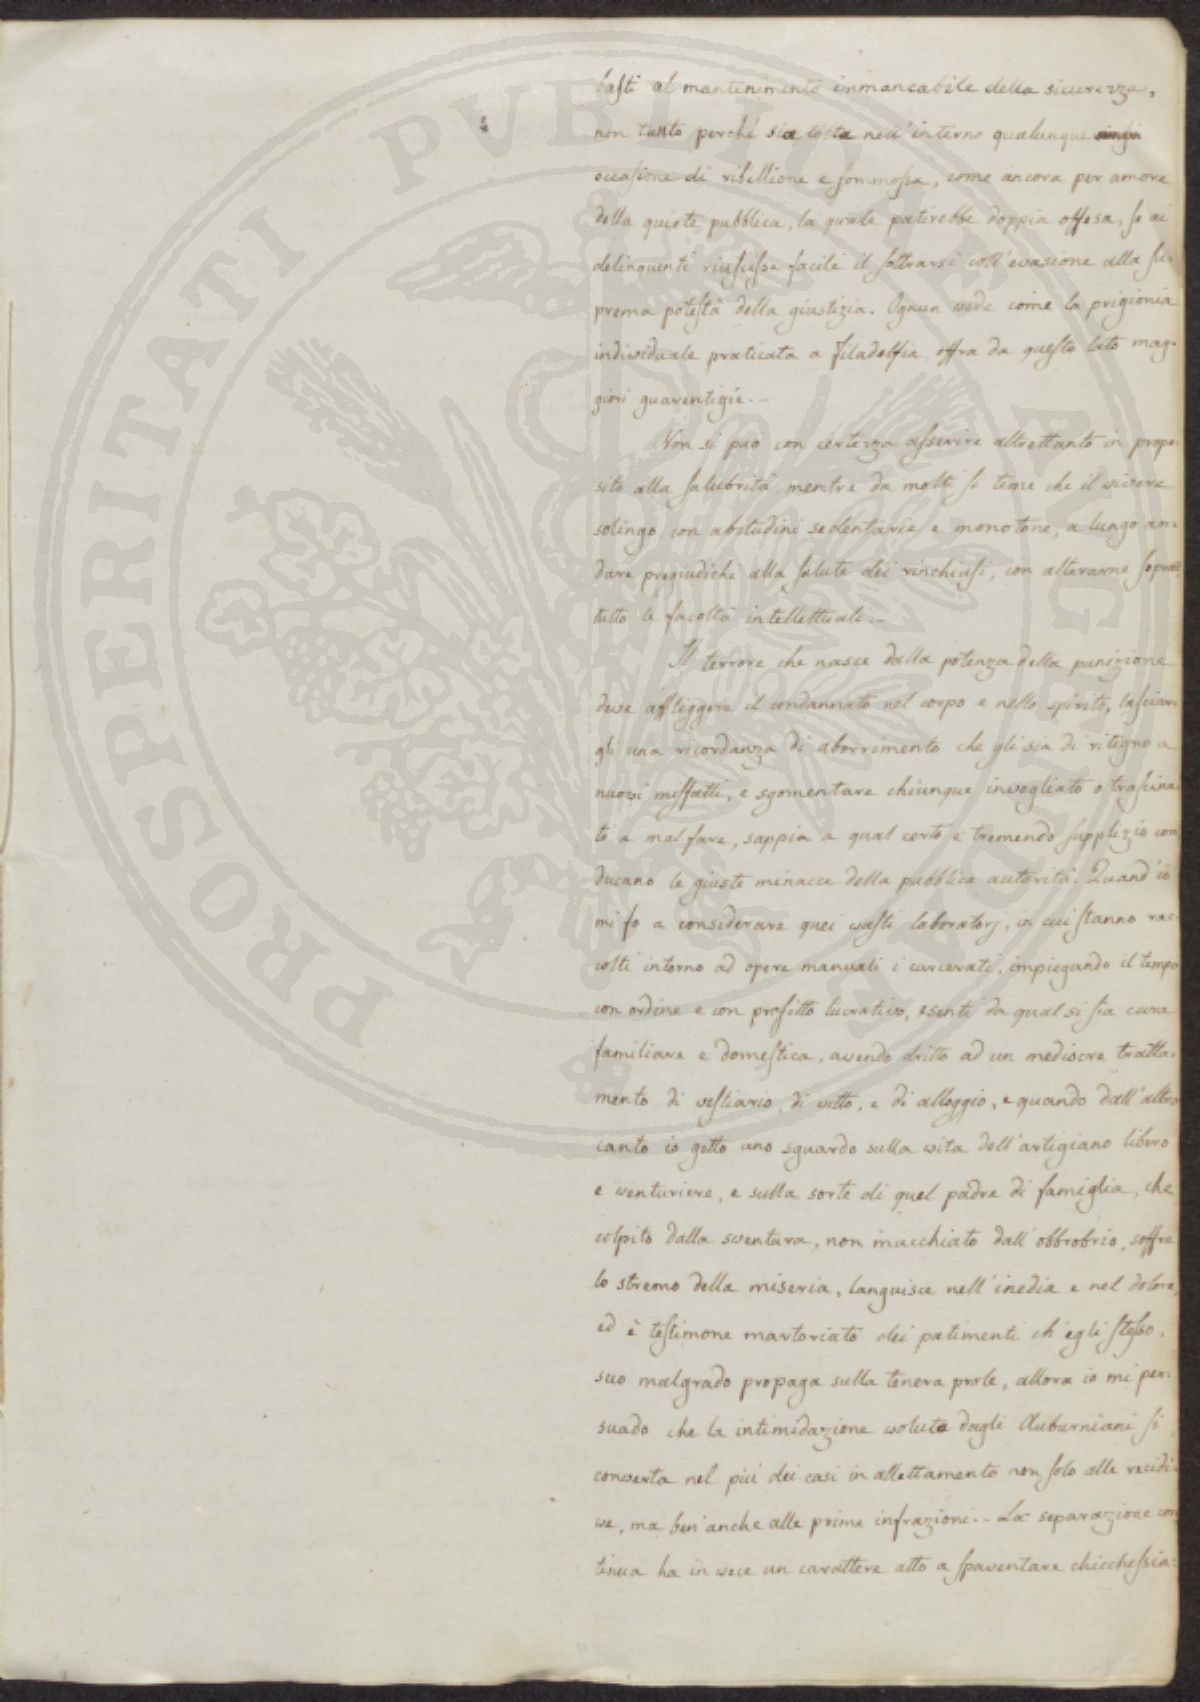 basti al mantenimento immancabile della sicurezza,
non tanto perché sia tosta nell'interno qualunque
occasione di ribellione e sommossa, come ancora per amore
della quiete pubblica, la quale patirebbe doppia offesa, se ai
delinquenti riuscisse facile il sottrarsi coll'evasione alla su-
prema potestà della giustizia. Ognun vede come la prigionia
individuale praticata a Filadelfia offra da questo lato mag-
giori guarentigie.-
Non si può con certezza asserire altrettanto in propo-
sito alla salubrità, mentre da molti si teme che il vivere
solingo, con abitudini sedentarie e monotone, a lungo an-
dare pregiudichi alla salute dei rinchiusi, con alterarne soprat
tutto le facoltà intellettuali.-
Il terrore che nasce dalla potenza della punizione
deve affliggere il condannato nel corpo e nello spirito, lasciar-
gli una ricordanza di aborrimento che gli sia di ritegno a
nuovi misfatti, e sgomentare chiunque invogliato o trascina-
to a mal fare, sappia a qual certo e tremendo supplizio con
ducano le giuste minacce della pubblica autorità. Quand'io
mi fo a considerare quei vasti laboratorj, in cui stanno rac-
colti intorno ad opere manuali i carcerati, impiegando il tempo
con ordine e con profitto lucrativo, esenti da qual si sia cura
familiare e domestica, avendo dritto ad un mediocre tratta-
mento di vestiario, di vitto, e di alloggio, e quando dall'altro
canto io getto uno sguardo sulla vita dell'artigiano libero
e venturiere, e sulla sorte di quel padre di famiglia, che
colpito dalla sventura, non macchiato dall'obbrobrio, soffre
lo stremo della miseria, languisce nell'inedia e nel dolore,
ed è testimone martoriato dei patimenti ch'egli stesso,
suo malgrado propaga sulla tenera prole, allora io mi per-
suado che la intimidazione voluta dagli Auburniani si
converta nel più dei casi in allettamento non solo alle recidi-
ve, ma ben'anche alle prime infrazioni.- La separazione con
tinua ha in vece un carattere atto a spaventare chicchessia:
PROSPERITATI PUBLICAE AUGENDAE